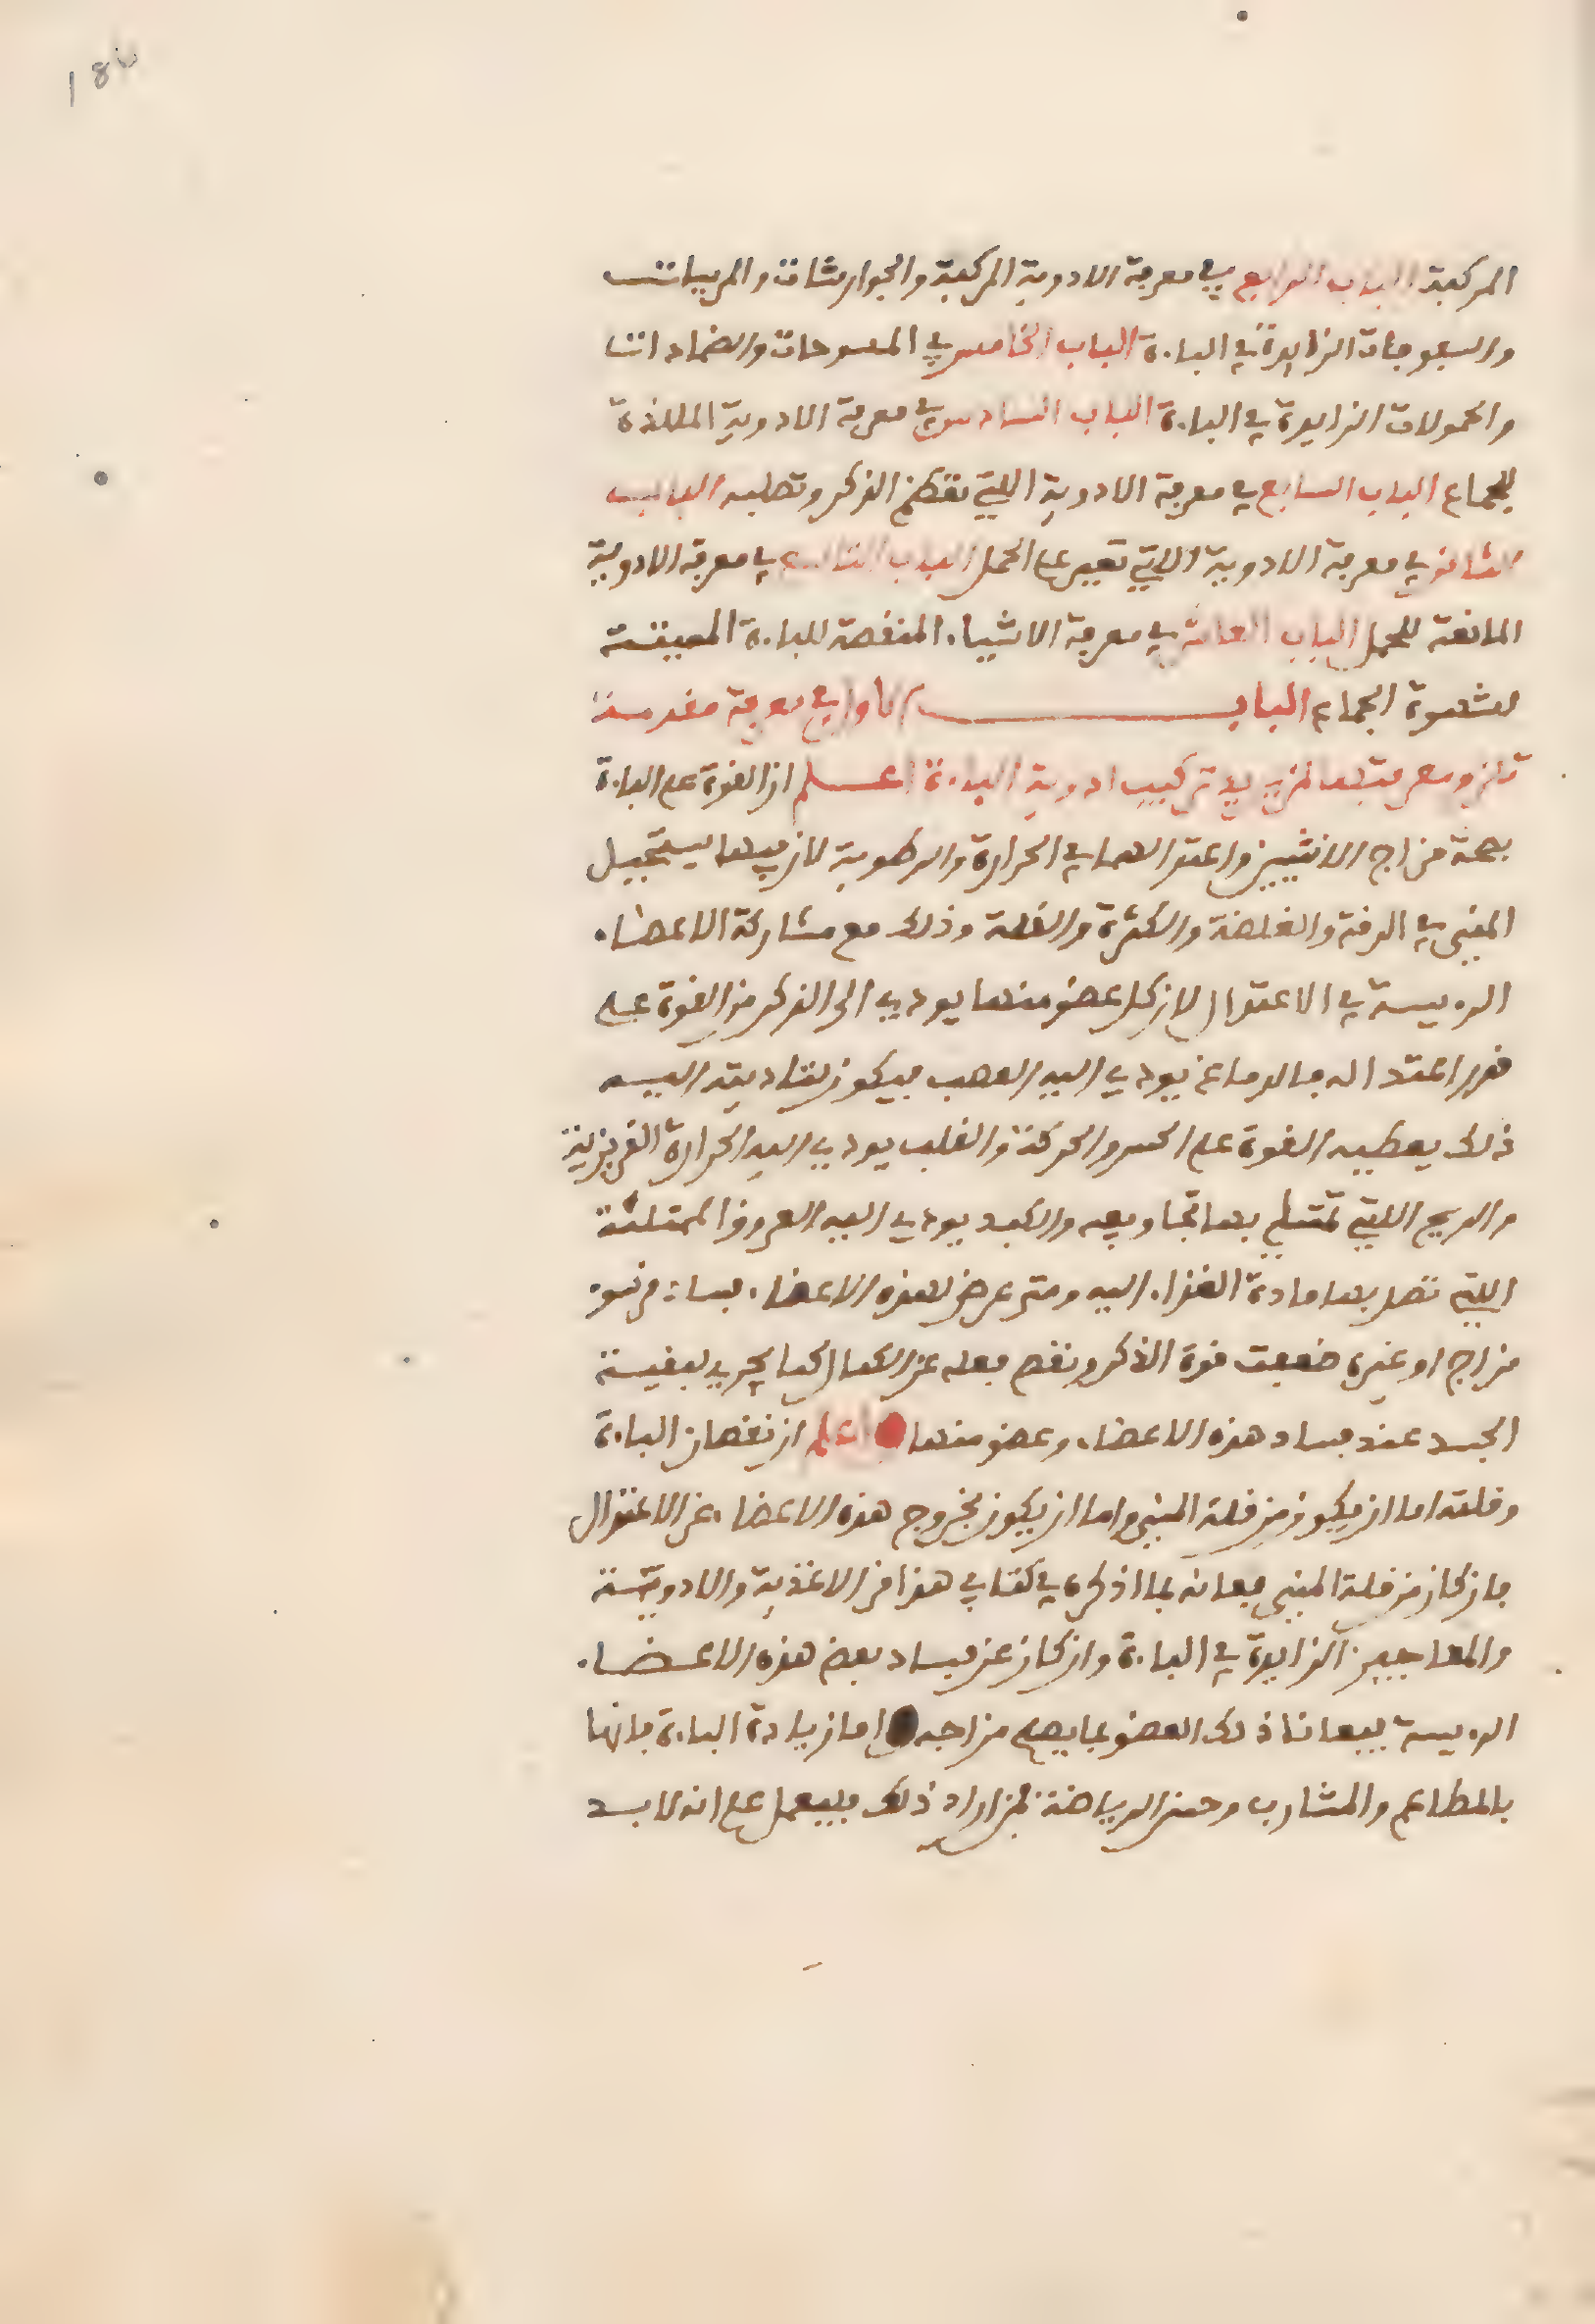 186
المركبة الباب الرابع في معرفة الادوية المركبة والجوارشات والمربيات
والسفوجات الزايدة في الباءة الباب الخامس في المسوحات والضمادات
والحمولات الزايدة في الباءة الباب السادس في معرفة الادوية المللذة
للجماع الباب السابع في معرفة الادوية اللتي تعظم الذكر وتصلبه الباب
الثامن في معرفة الادوية اللتي تعين على الحمل الباب التاسع في معرفة الادوية
المانعة للحمل الباب العاشر في معرفة الاشياء المنغصة للباءة المميتة
لشهوة الجماع الباب الاول في معرفة مقدمة
تلزم معرفتها لمن يريد تركيب ادوية الباءة اعلم ان القوة على الباءة
بصحة مزاج الانثيين واعتدالهما في الحرارة والرطوبة لان فيهما يستحيل
المني في الرقة والغلضة والكثرة والقلة وذلك مع مشاركة الاعضاء
الرءيسة في الاعتدال لان كل عضو منها يودي الى الذكر من القوة على
قدر اعتداله فالدماغ يودي اليه العصب فيكون بتاديته اليه
ذلك يعطيه القوة على الحس والحركة والقلب يودي اليه الحرارة الغريزية
والريح اللتي تمتلي بها تجاويفه والكبد يودي اليه العروق الممتلئة
اللتي تصل بها مادة الغذاء اليه ومتى عرض لهذه الاعضاء فساد من سوء
مزاج او غيره ضعفت قوة الذكر ونقص فعله عن الكمال كما يجري لبقية
الجسد عند فساد هذه الاعضاء وعضو منها اعلم ان نقصان الباءة
وقلته اما ان يكون من قلة المني واما ان يكون لخروج هذه الاعضاء عن الاعتدال
فان كان من قلة المني فعانه بما اذكره في كتابي هذا من الاغذية والادوية
والمعاجين الزايدة في الباءة وان كان عن فساد بعض هذه الاعضاء
الرءيسة فيعانا ذلك العضو بما يصلح مزاجه اما زيادة الباءة فانها
بالمطاعم والمشارب وحسن الرياضة فمن اراد ذلك فليعمل على انه لا بد